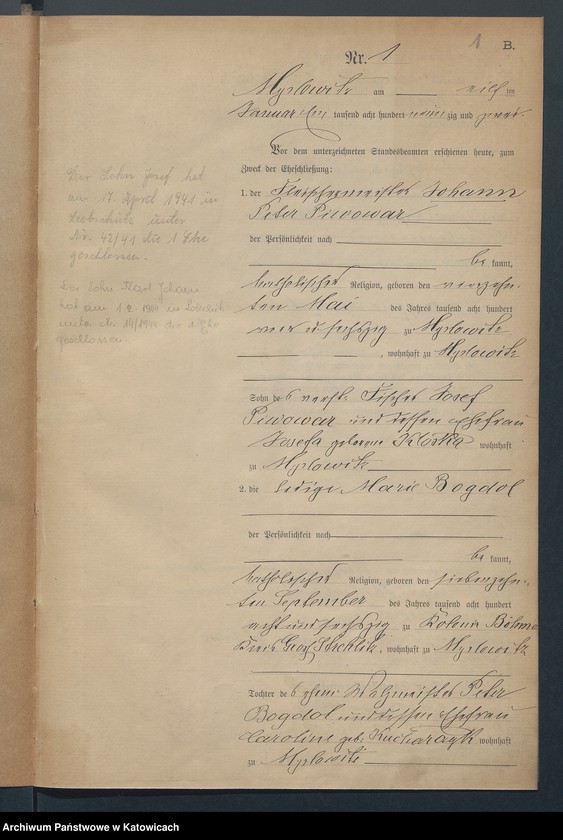 1 B.
Nr. 1
Myslowitz am elf ten
Januar ein tausend acht hundert neunzig und zwei.
Vor dem unterzeichneten Standesbeamten erschienen heute, zum
Zweck der Eheschließung:
1. der Fleischermeister Johann
Peter Piwowar
der Persönlichkeit nach
be kannt,
katholischer Religion, geboren den vierzehn-
ten Mai des Jahres tausend acht hundert
vier und sechszig zu Myslowitz
, wohnhaft zu Myslowitz
Sohn des verst. Josef
Piwowar und dessen Ehefrau
Josefa geborene Kloska wohnhaft
zu Myslowitz
2. die ledige Marie Bogdol
der Persönlichkeit nach
be kannt,
katholischer Religion, geboren den siebenzehn-
ten September des Jahres tausend acht hundert
acht und sechszig zu Kolonie
Kreis Groß Strehlitz, wohnhaft zu Myslowitz
Tochter des Peter
Bogdol und dessen Ehefrau
Caroline geb. Kucharczyk wohnhaft
zu Myslowitz
Der Sohn Josef hat
am 17. April 1941 in
Leobschütz unter
Nr. 42/41 die 1 Ehe
geschlossen.
Der Sohn Karl Johann
hat am 1944 in
unter Nr. 14/1944 die 1 Ehe
geschlossen
Archiwum Państwowe w Katowicach